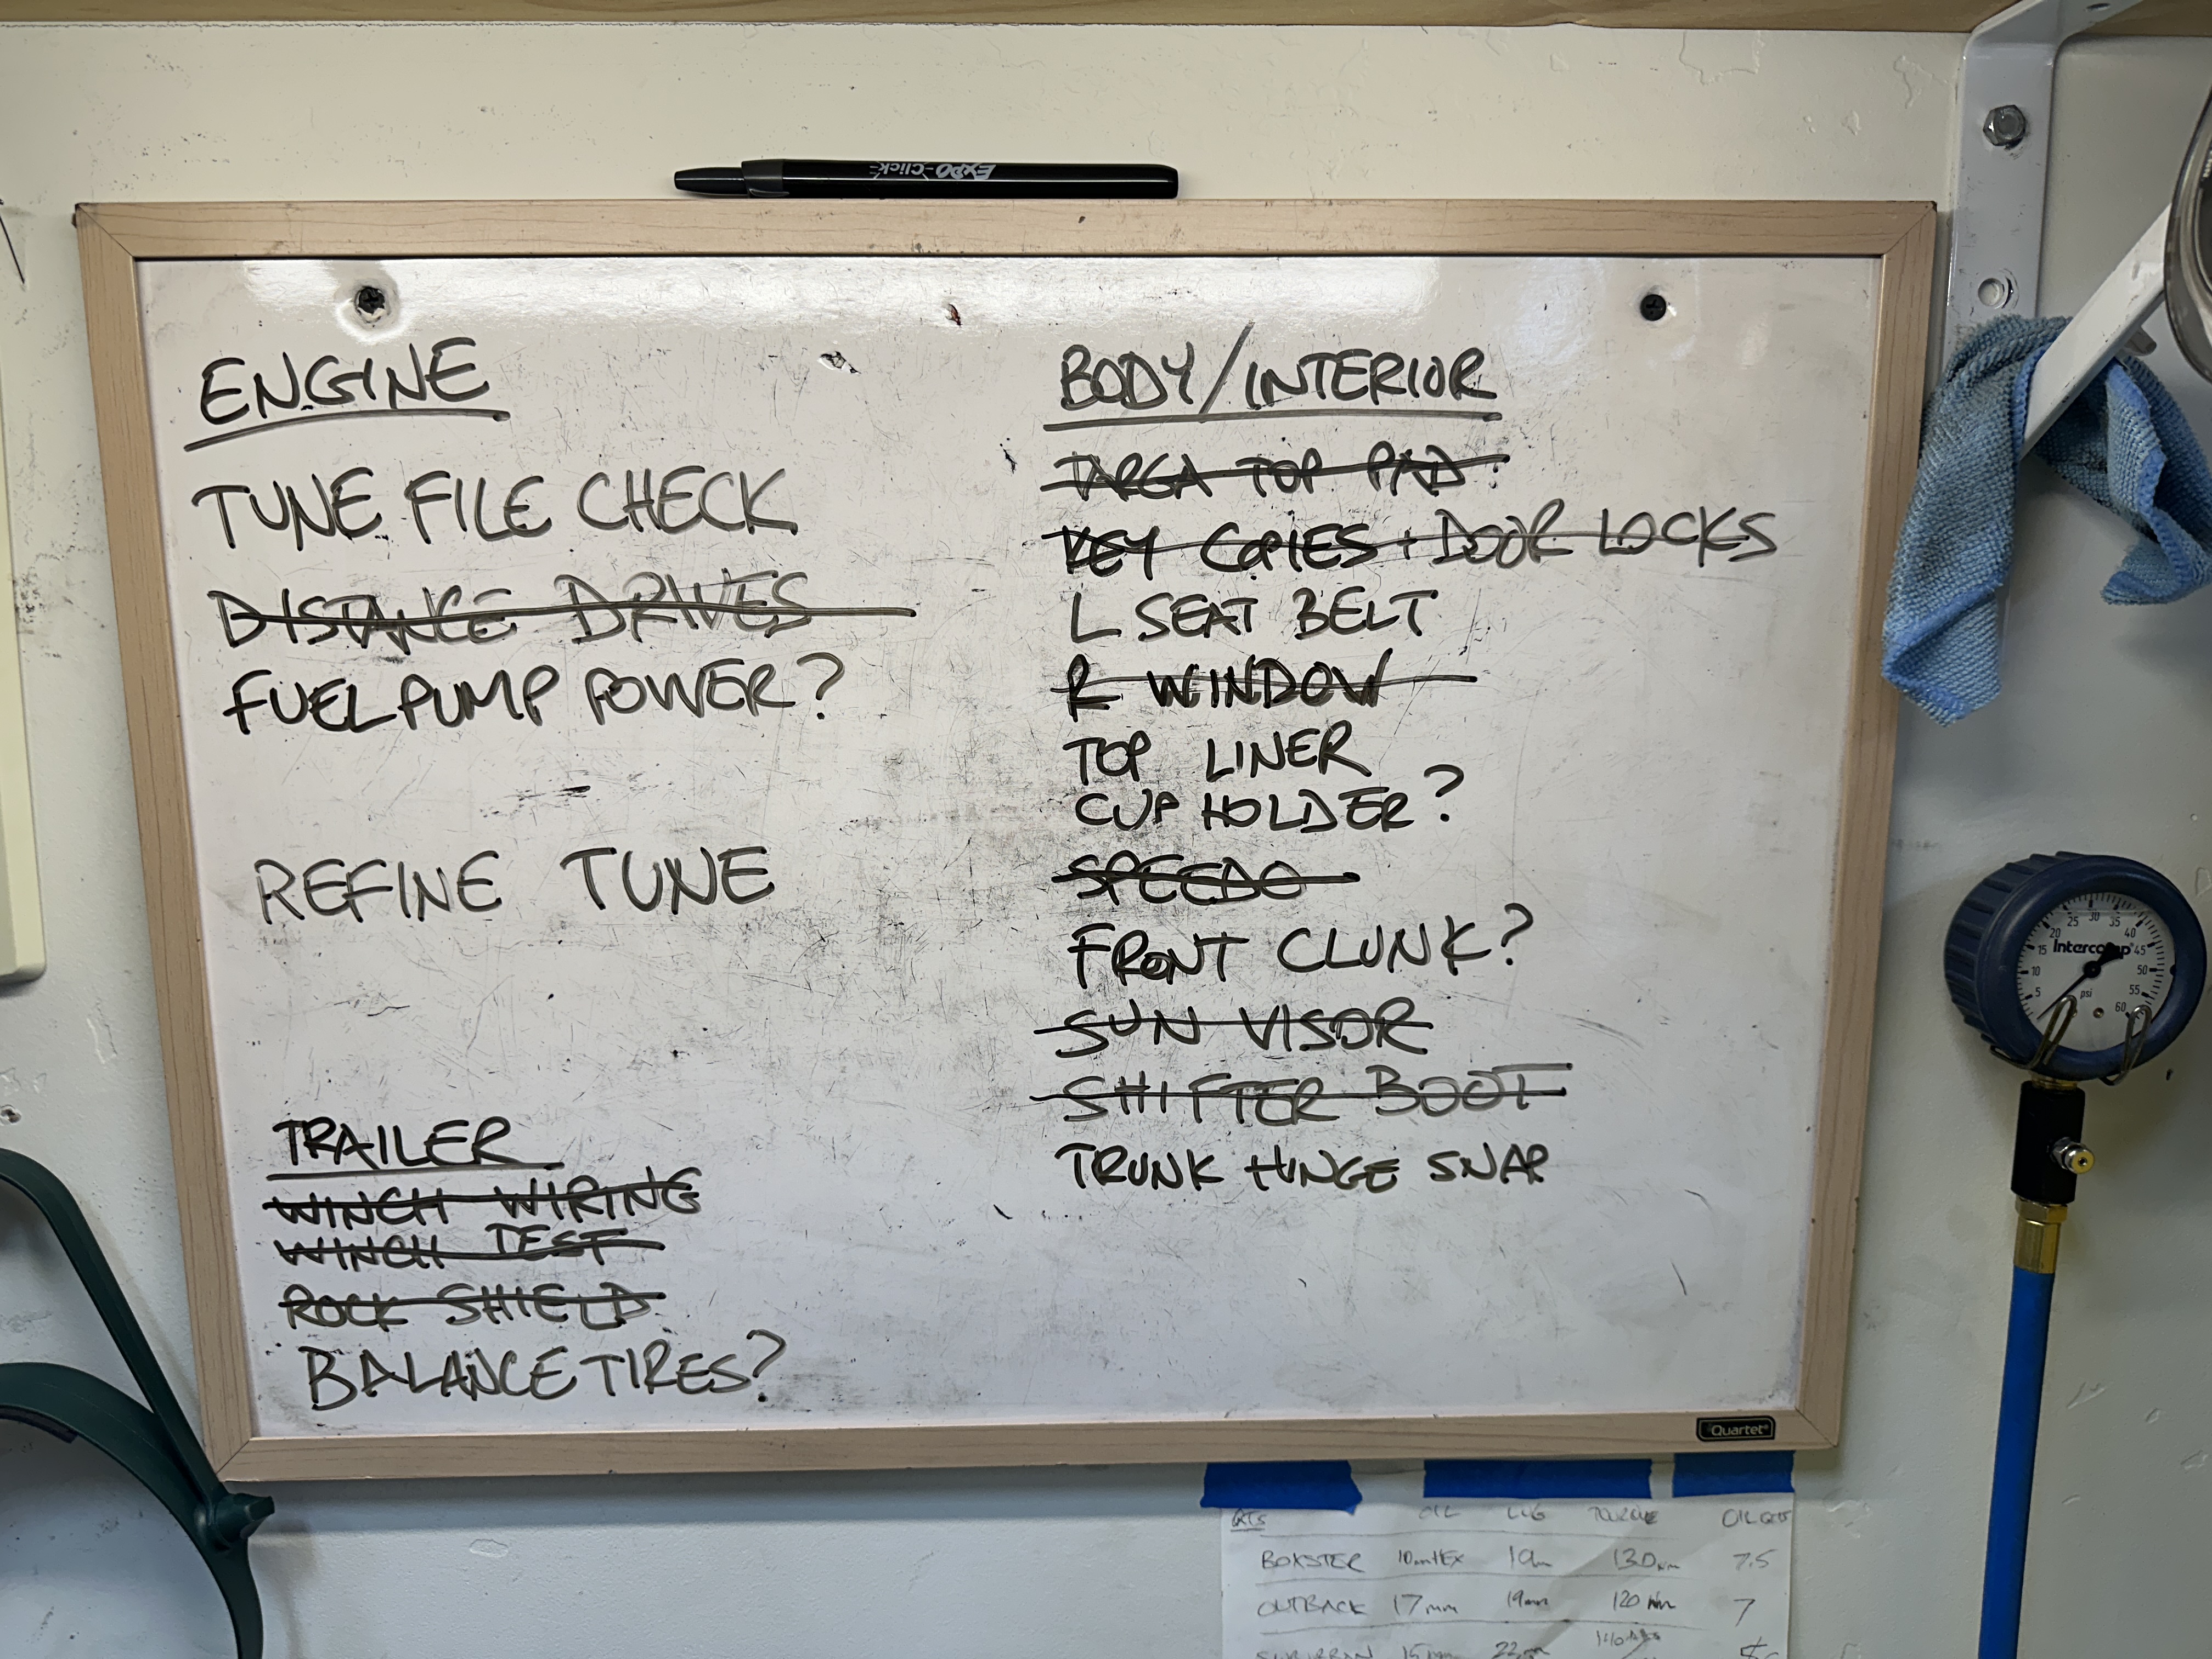 EXPO Click
ENGINE
TUNE FILE CHECK
DISTANCE DRIVES
FUEL PUMP POWER?
REFINE TUNE
TRAILER
WINCH WIRING
WINCH TEST
ROCK SHIELD
BALANCE TIRES?
BODY/INTERIOR
TARGA TOP PAD
KEY COPIES + DOOR LOCKS
L SEAT BELT
R WINDOW
TOP LINER
CUP HOLDER?
SPEEDO
FRONT CLUNK?
SUN VISOR
SHIFTER BOOT
TRUNK HINGE SNAP
Quartet
5 10 15 20 25 30 35 40 45 50 55 60
Intercomp
psi
OIL LUG TORQUE OIL QTS
BOXSTER 10mm HEX 19m 130 Nm 7.5
OUTBACK 17mm 19mm 120 Nm 7
SUBURBAN 15mm 22m